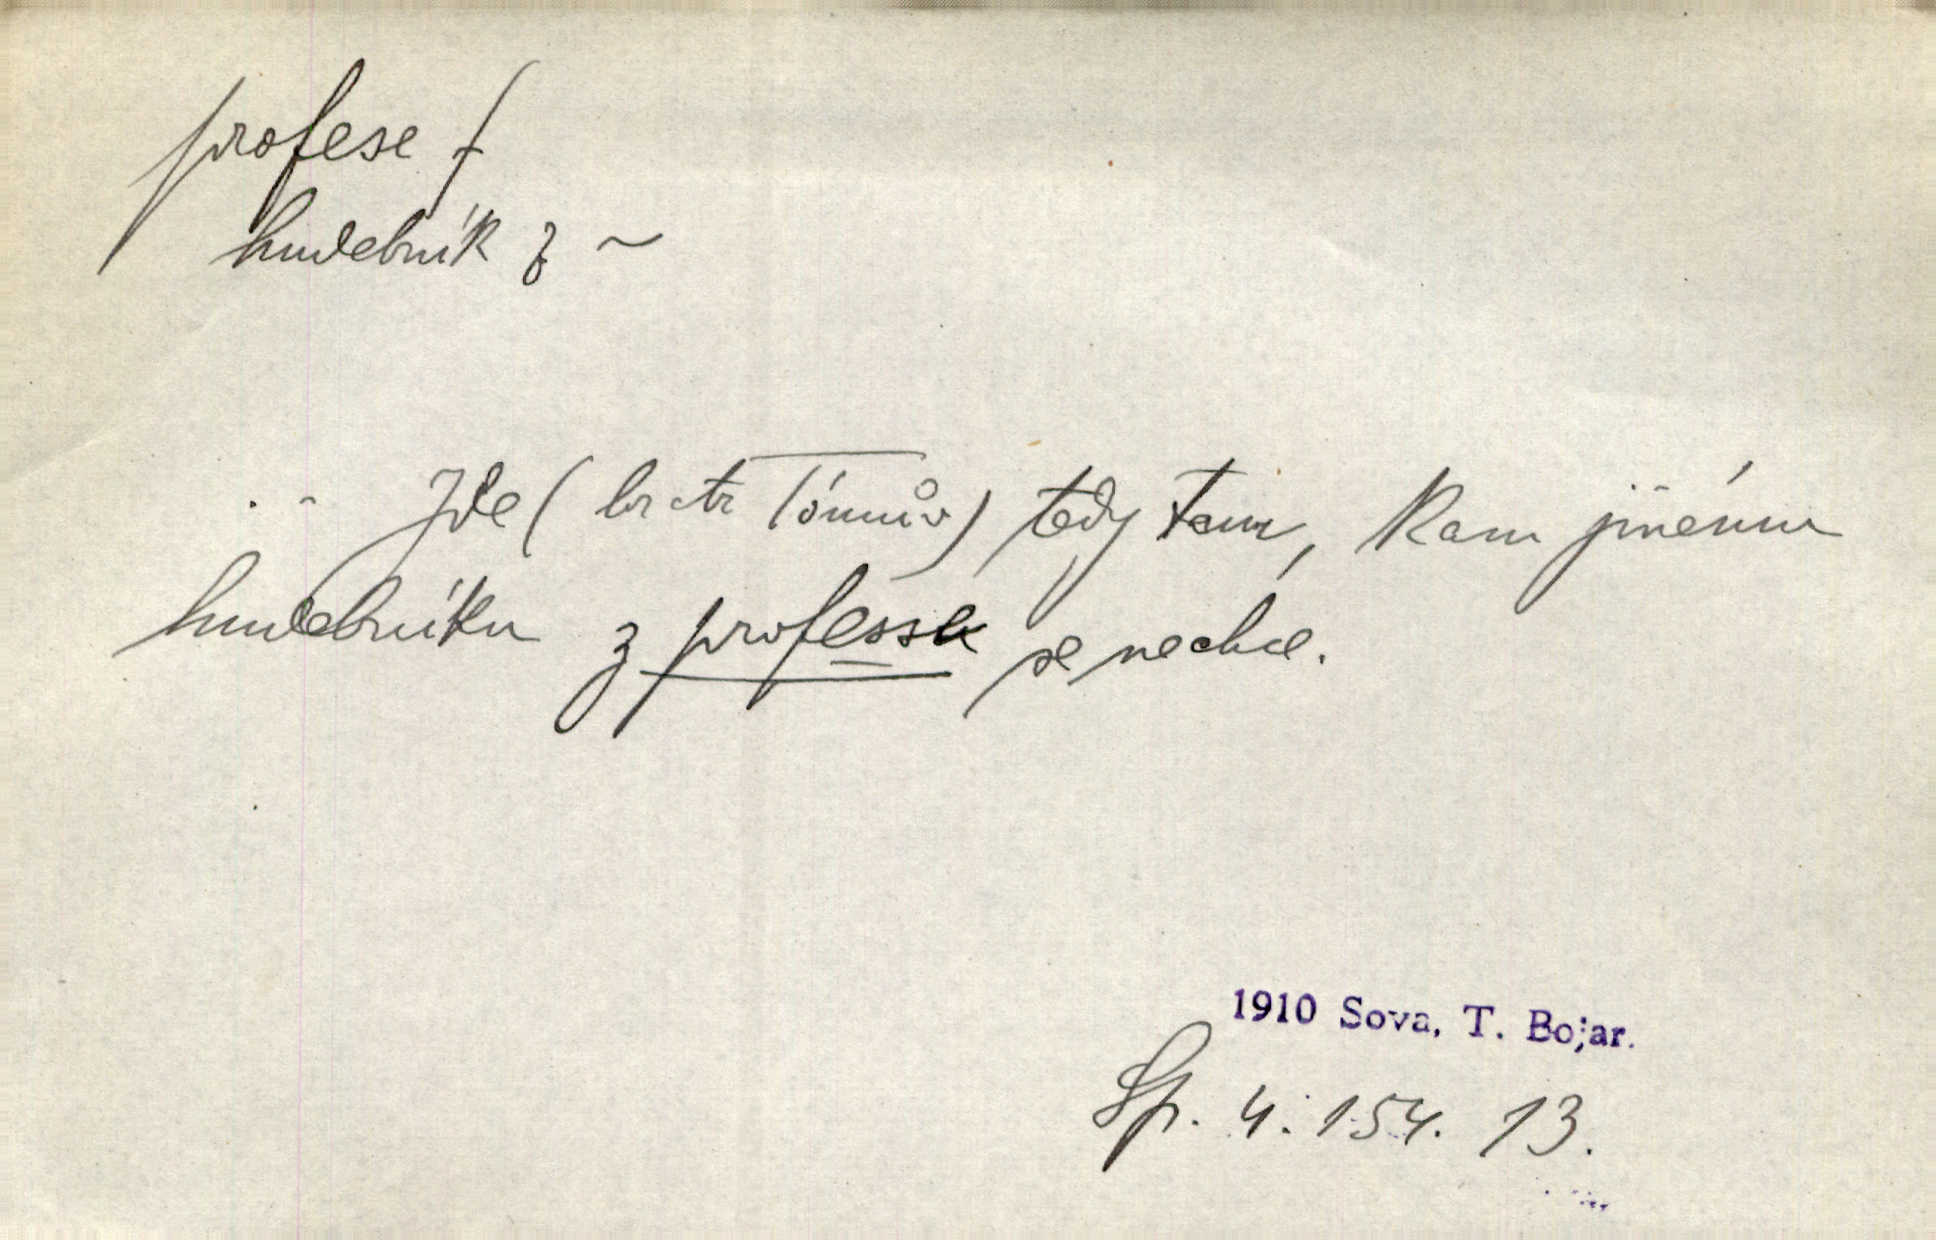 profese f
hudebník z ~
Jde (bratr Tómův) tedy tam, kam jinému
hudebníku z professe se nechce.
1910 Sova, T. Bojar.
Sp. 4. 154. 13.